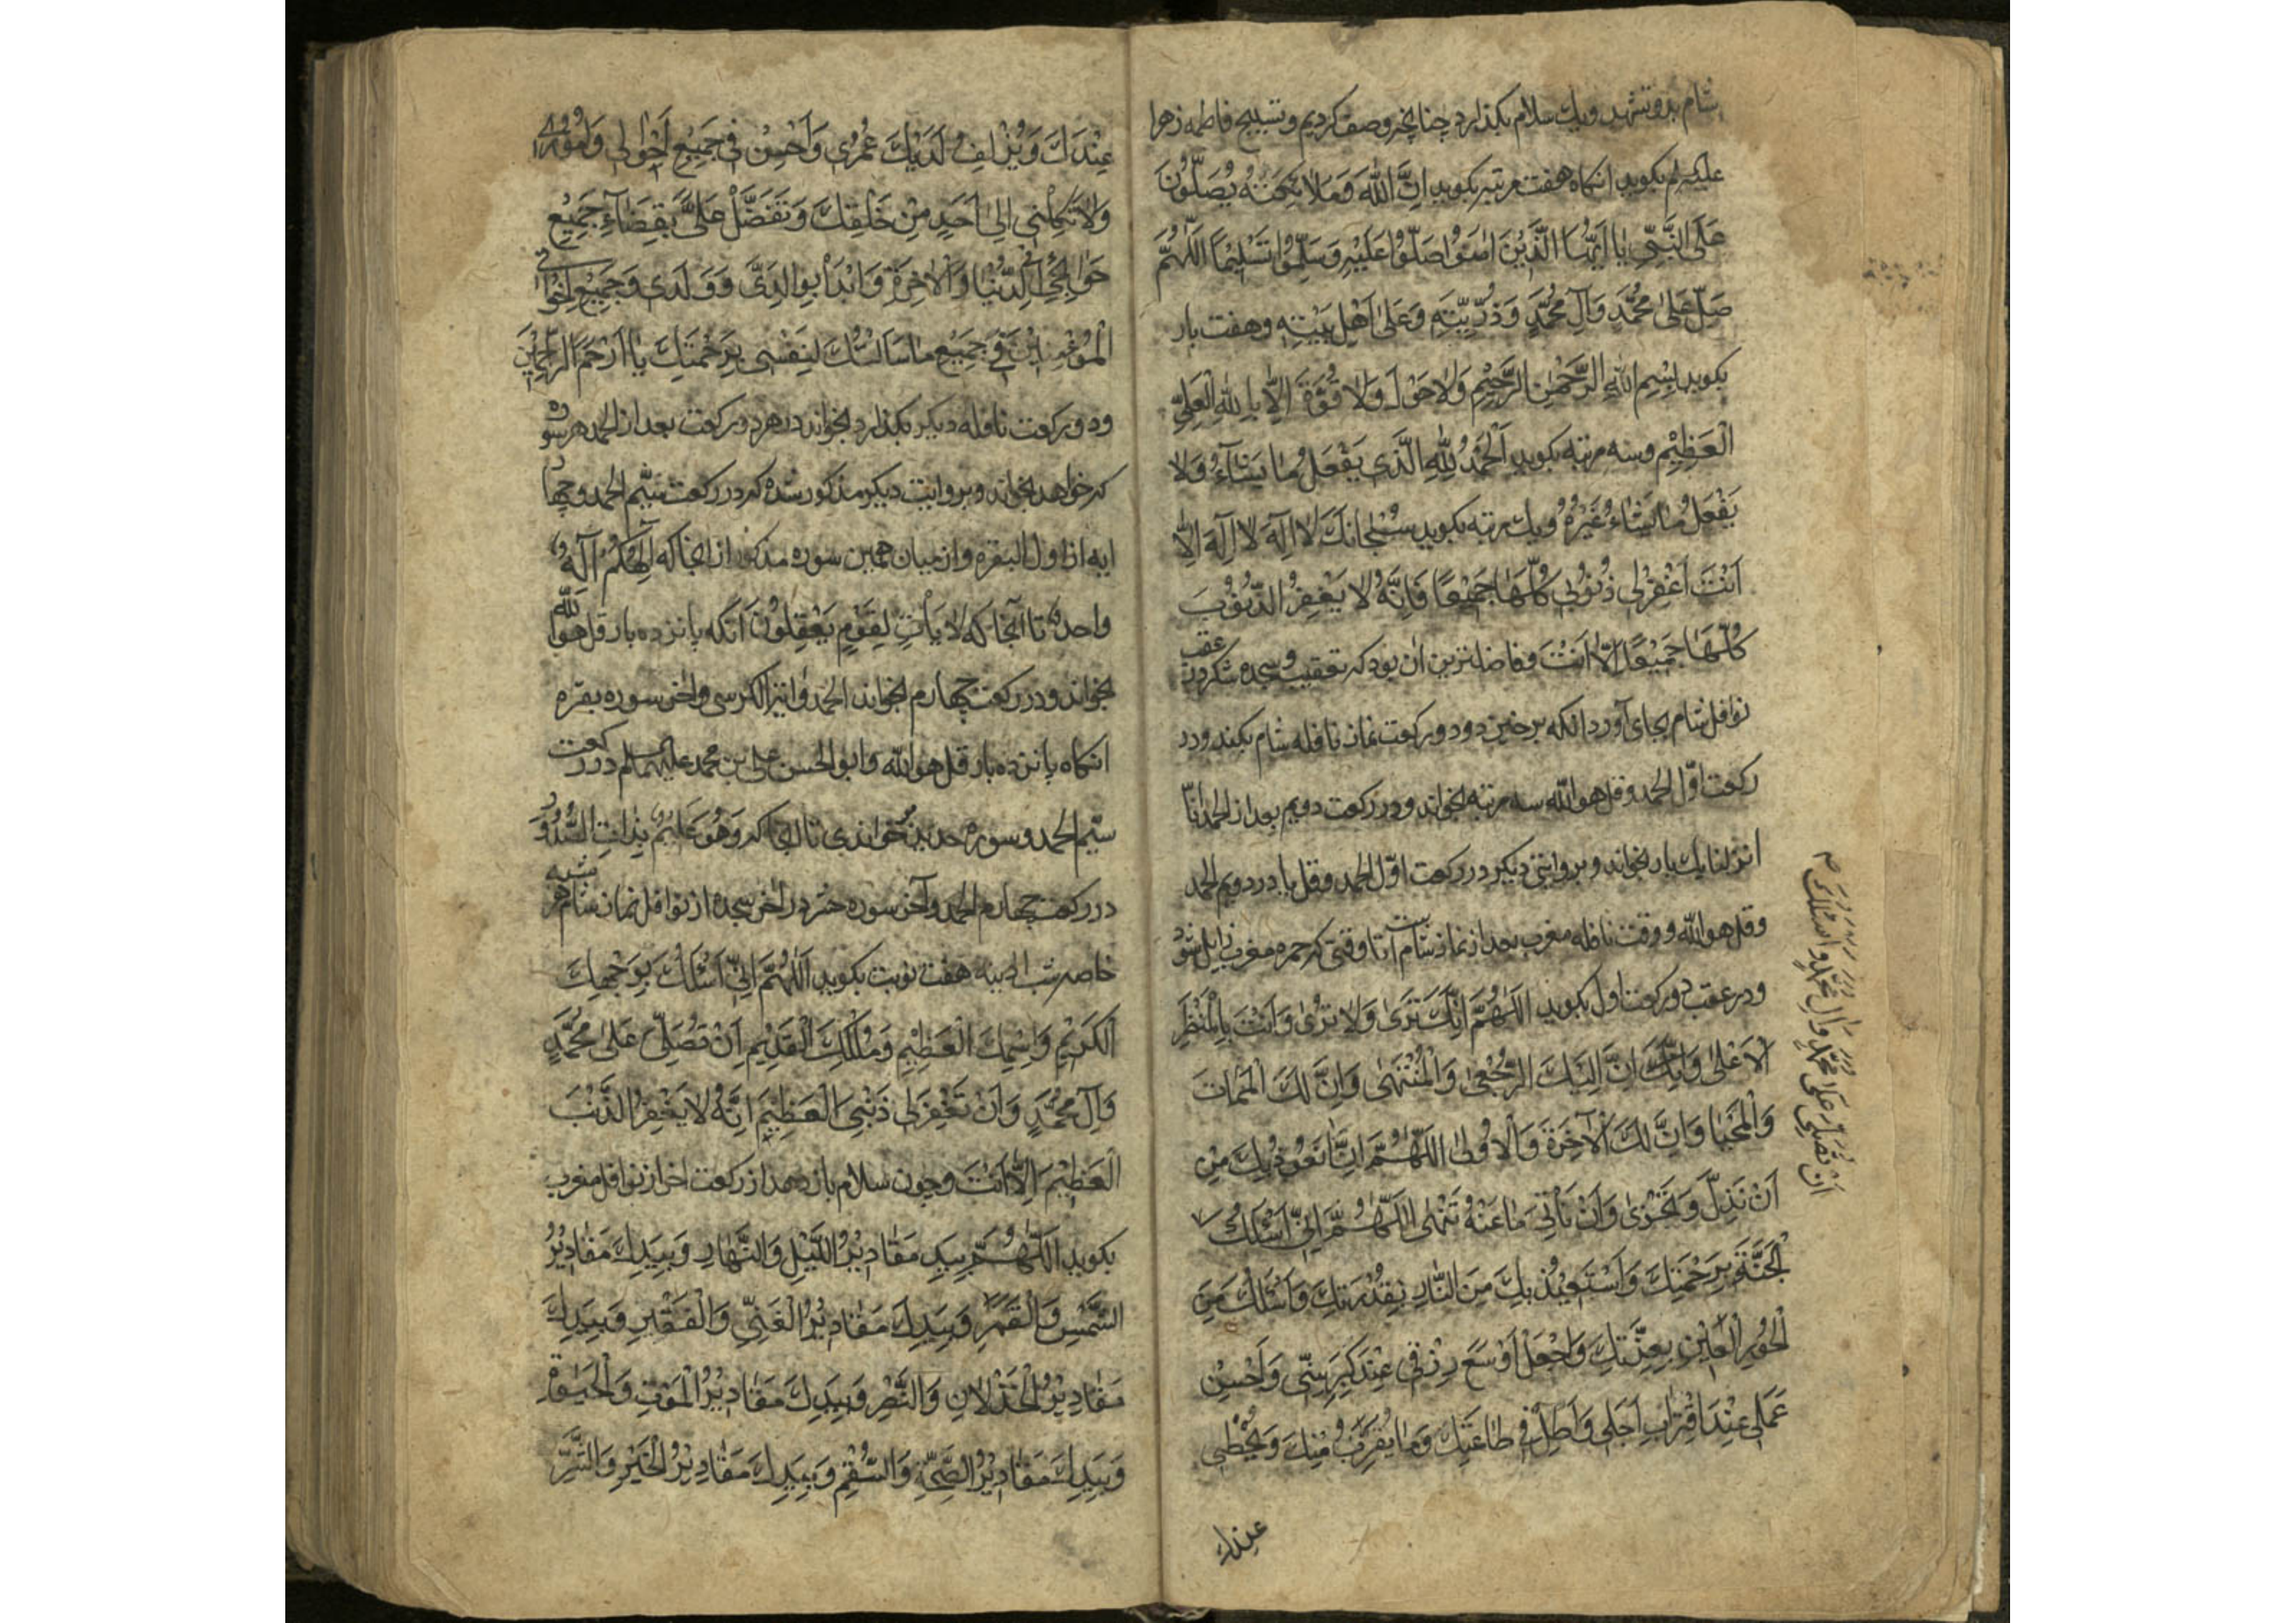 شام بدو تشهد و یك سلام بکذارد چنانچه وصف کردیم و تسبیح فاطمه زهرا
علیهم بکوید انکاه هفت مرتبه بکوید اِنَّ اللّٰهَ وَمَلائِکَتَهُ یُصَلُّونَ
عَلَی النَّبِیِّ یا اَیُّهَا الَّذِیْنَ اٰمَنُوا صَلُّوْا عَلَیْهِ وَسَلِّمُوا تَسْلِیْمًا اَللّٰهُمَّ
صَلِّ عَلٰی مُحَمَّدٍ وَآلِ مُحَمَّدٍ وَذُرِّیَّتِهِ وَعَلٰی اَهْلِ بَیْتِهِ وهفت بار
بکوید بِسْمِ اللّٰهِ الرَّحْمٰنِ الرَّحِیْمِ وَلٰا حَوْلَ وَلٰا قُوَّةَ اِلّٰا بِاللّٰهِ الْعَلِیِّ
الْعَظِیْمِ وسه مرتبه بکوید اَلْحَمْدُ لِلّٰهِ الَّذِی یَفْعَلُ مٰا یَشٰآءُ وَلٰا
یَفْعَلُ مٰا یَشٰاءُ غَیْرُهُ ویك مرتبه بکوید سُبْحٰانَكَ لٰا اِلٰهَ لا اِلٰهَ اِلّٰا
اَنْتَ اغْفِرْلِی ذُنُوْبِی کُلَّهٰا جَمِیْعًا فَاِنَّهُ لٰا یَغْفِرُ الذُّنُوْبَ
کُلَّهٰا جَمِیْعًا اِلّٰا اَنْتَ وفاضلترین ان بود که تعقیب و سجده شکر در عقب
نوافل شام بجای آورد انکه برخیزد ودو رکعت نماز نافله شام بکند ودر
رکعت اوّل الحمد وقل هو اللّه سه مرتبه بخواند ودر رکعت دویم بعد از الحمد انّا
انزلنا یك بار بخواند وبروایتی دیکر در رکعت اوّل الحمد وقل یا در دویم الحمد
وقل هو اللّه ووقت نافله مغرب بعد از نماز شام است تا وقتی که حمره مغرب زایل شود
ودر عقب دو رکعت اول بکوید اَللّٰهُمَّ اِنَّكَ تَرٰی وَلٰا تُرٰی وَاَنْتَ بِالْمَنْظَرِ
الْاَعْلٰی وَاِنَّ اِلَیْكَ الرُّجْعٰی وَالْمُنْتَهٰی وَاِنَّ لَكَ الْمَمٰاتَ
وَالْمَحْیٰا وَاِنَّ لَكَ الْاٰخِرَةَ وَالْاُوْلٰی اَللّٰهُمَّ اِنّٰا نَعُوْذُ بِكَ مِنْ
اَنْ نَذِلَّ وَنَخْزٰی وَاَنْ نَأْتِیَ مٰا عَنْهُ تَنْهٰی اَللّٰهُمَّ اِنِّی اَسْئَلُكَ
الْجَنَّةَ بِرَحْمَتِكَ وَاَسْتَعِیْذُ بِكَ مِنَ النّٰارِ بِقُدْرَتِكَ وَاَسْئَلُكَ مِنَ
الْحُوْرِ الْعِیْنِ بِعِزَّتِكَ وَاجْعَلْ اَوْسَعَ رِزْقِی عِنْدَ کِبَرِ سِنِّی وَاَحْسَنَ
عَمَلِی عِنْدَ اقْتِرٰابِ اَجَلِی وَاَطِلْ فِی طٰاعَتِكَ وَمٰا یُقَرِّبُ مِنْكَ وَیُحْظِی
عندك
اَنْ تُصَلِّیَ عَلٰی مُحَمَّدٍ وَآلِ مُحَمَّدٍ وَاَسْئَلُكَ
عِنْدَكَ وَیُزْلِفُ لَدَیْكَ عُمُرِی وَاَحْسِنْ فِی جَمِیْعِ اَحْوٰالِی وَاُمُوْرِی
وَلٰا تَکِلْنِی اِلٰی اَحَدٍ مِنْ خَلْقِكَ وَتَفَضَّلْ عَلَیَّ بِقَضٰآءِ جَمِیْعِ
حَوٰائِجِی لِلدُّنْیٰا وَالْاٰخِرَةِ وَابْدَأْ بِوٰالِدَیَّ وَوَلَدِی وَجَمِیْعِ اِخْوٰانِی
الْمُؤْمِنِیْنَ فِی جَمِیْعِ مٰا سَاَلْتُكَ لِنَفْسِی بِرَحْمَتِكَ یٰا اَرْحَمَ الرّٰاحِمِیْنَ
ودو رکعت نافله دیکر بکذارد بخواند در هر دو رکعت بعد از الحمد هر سوره
که خواهد بخواند وبروایت دیکر مذکور شده که در رکعت سیّم الحمد وچهار
ایه از اول البقره واز میان همین سوره مذکور از انجا که اِلٰهُکُمْ اِلٰهٌ
واحد تا آنجا که لاٰیٰاتٍ لِقَوْمٍ یَعْقِلُوْنَ انکه پانزده بار قل هو اللّه
بخواند ودر رکعت چهارم بخواند الحمد وایة الکرسی واخر سوره بقره
انکاه پانزده بار قل هو اللّه وابو الحسن علی بن محمد علیهماسلم در رکعت
سیّم الحمد وسوره حدید خواندی تا انجا که وَهُوَ عَلِیْمٌ بِذٰاتِ الصُّدُوْرِ
در رکعت چهارم الحمد وآخر سوره حشر در اخر سجده از نوافل نماز شام هر شبه
خاصه شب ادینه هفت نوبت بکوید اَللّٰهُمَّ اِنِّی اَسْئَلُكَ بِوَجْهِكَ
الْکَرِیْمِ وَاِسْمِكَ الْعَظِیْمِ وَمُلْکِكَ الْقَدِیْمِ اَنْ تُصَلِّیَ عَلٰی مُحَمَّدٍ
وَآلِ مُحَمَّدٍ وَاَنْ تَغْفِرَ لِی ذَنْبِیَ الْعَظِیْمَ اِنَّهُ لٰا یَغْفِرُ الذَّنْبَ
الْعَظِیْمَ اِلّٰا اَنْتَ وچون سلام باز دهد از رکعت اخر از نوافل مغرب
بکوید اَللّٰهُمَّ بِیَدِكَ مَقٰادِیْرُ اللَّیْلِ وَالنَّهٰارِ وَبِیَدِكَ مَقٰادِیْرُ
الشَّمْسِ وَالْقَمَرِ وَبِیَدِكَ مَقٰادِیْرُ الْغَنِیِّ وَالْفَقْیرِ وَبِیَدِكَ
مَقٰادِیْرُ الْخِذْلٰانِ وَالنَّصْرِ وَبِیَدِكَ مَقٰادِیْرُ الْمَوْتِ وَالْحَیٰوةِ
وَبِیَدِكَ مَقٰادِیْرُ الصِّحَّةِ وَالسُّقْمِ وَبِیَدِكَ مَقٰادِیْرُ الْخَیْرِ وَالشَّرِّ